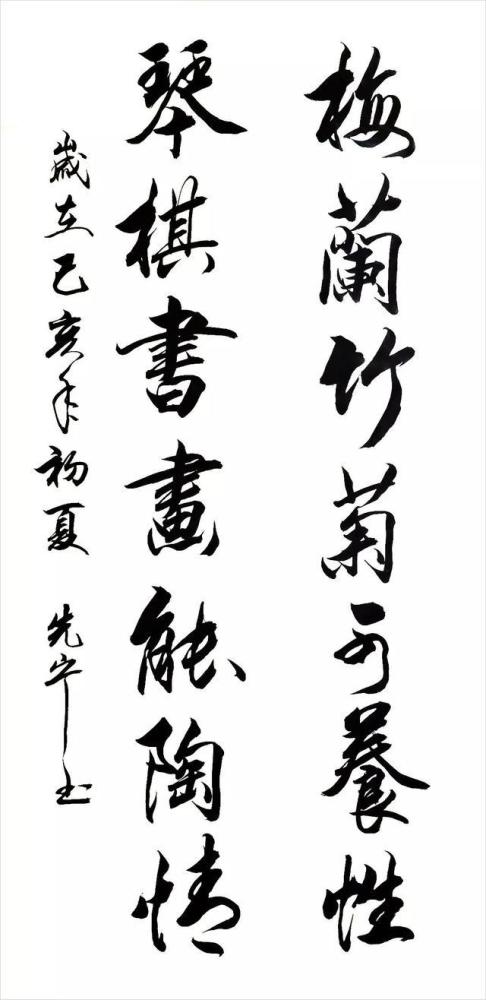 梅蘭竹菊可養性
琴棋書畫能陶情
歲在己亥年初夏 先宁书